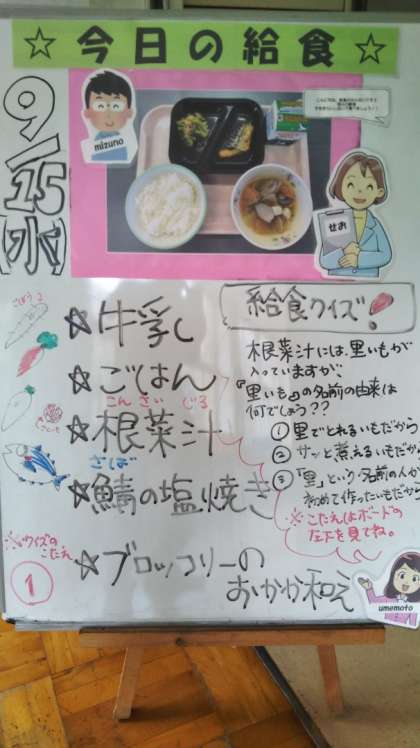 ☆今日の給食☆
9/15(水)
mizuno
せお
☆牛乳
☆ごはん
こんさいじる
☆根菜汁
さば
☆鯖の塩焼き
☆ブロッコリーの
おかか和え
給食クイズ
根菜汁には、里いもが
入っていますが、
『里いも』の名前の由来は
何でしょう??
①里でとれるいもだから
②サッと煮えるいもだから
③「里」という名前の人が
初めて作ったいもだから
※こたえはボードの
左下を見てね。
ごぼう
※クイズの
こたえ
1
umemoto